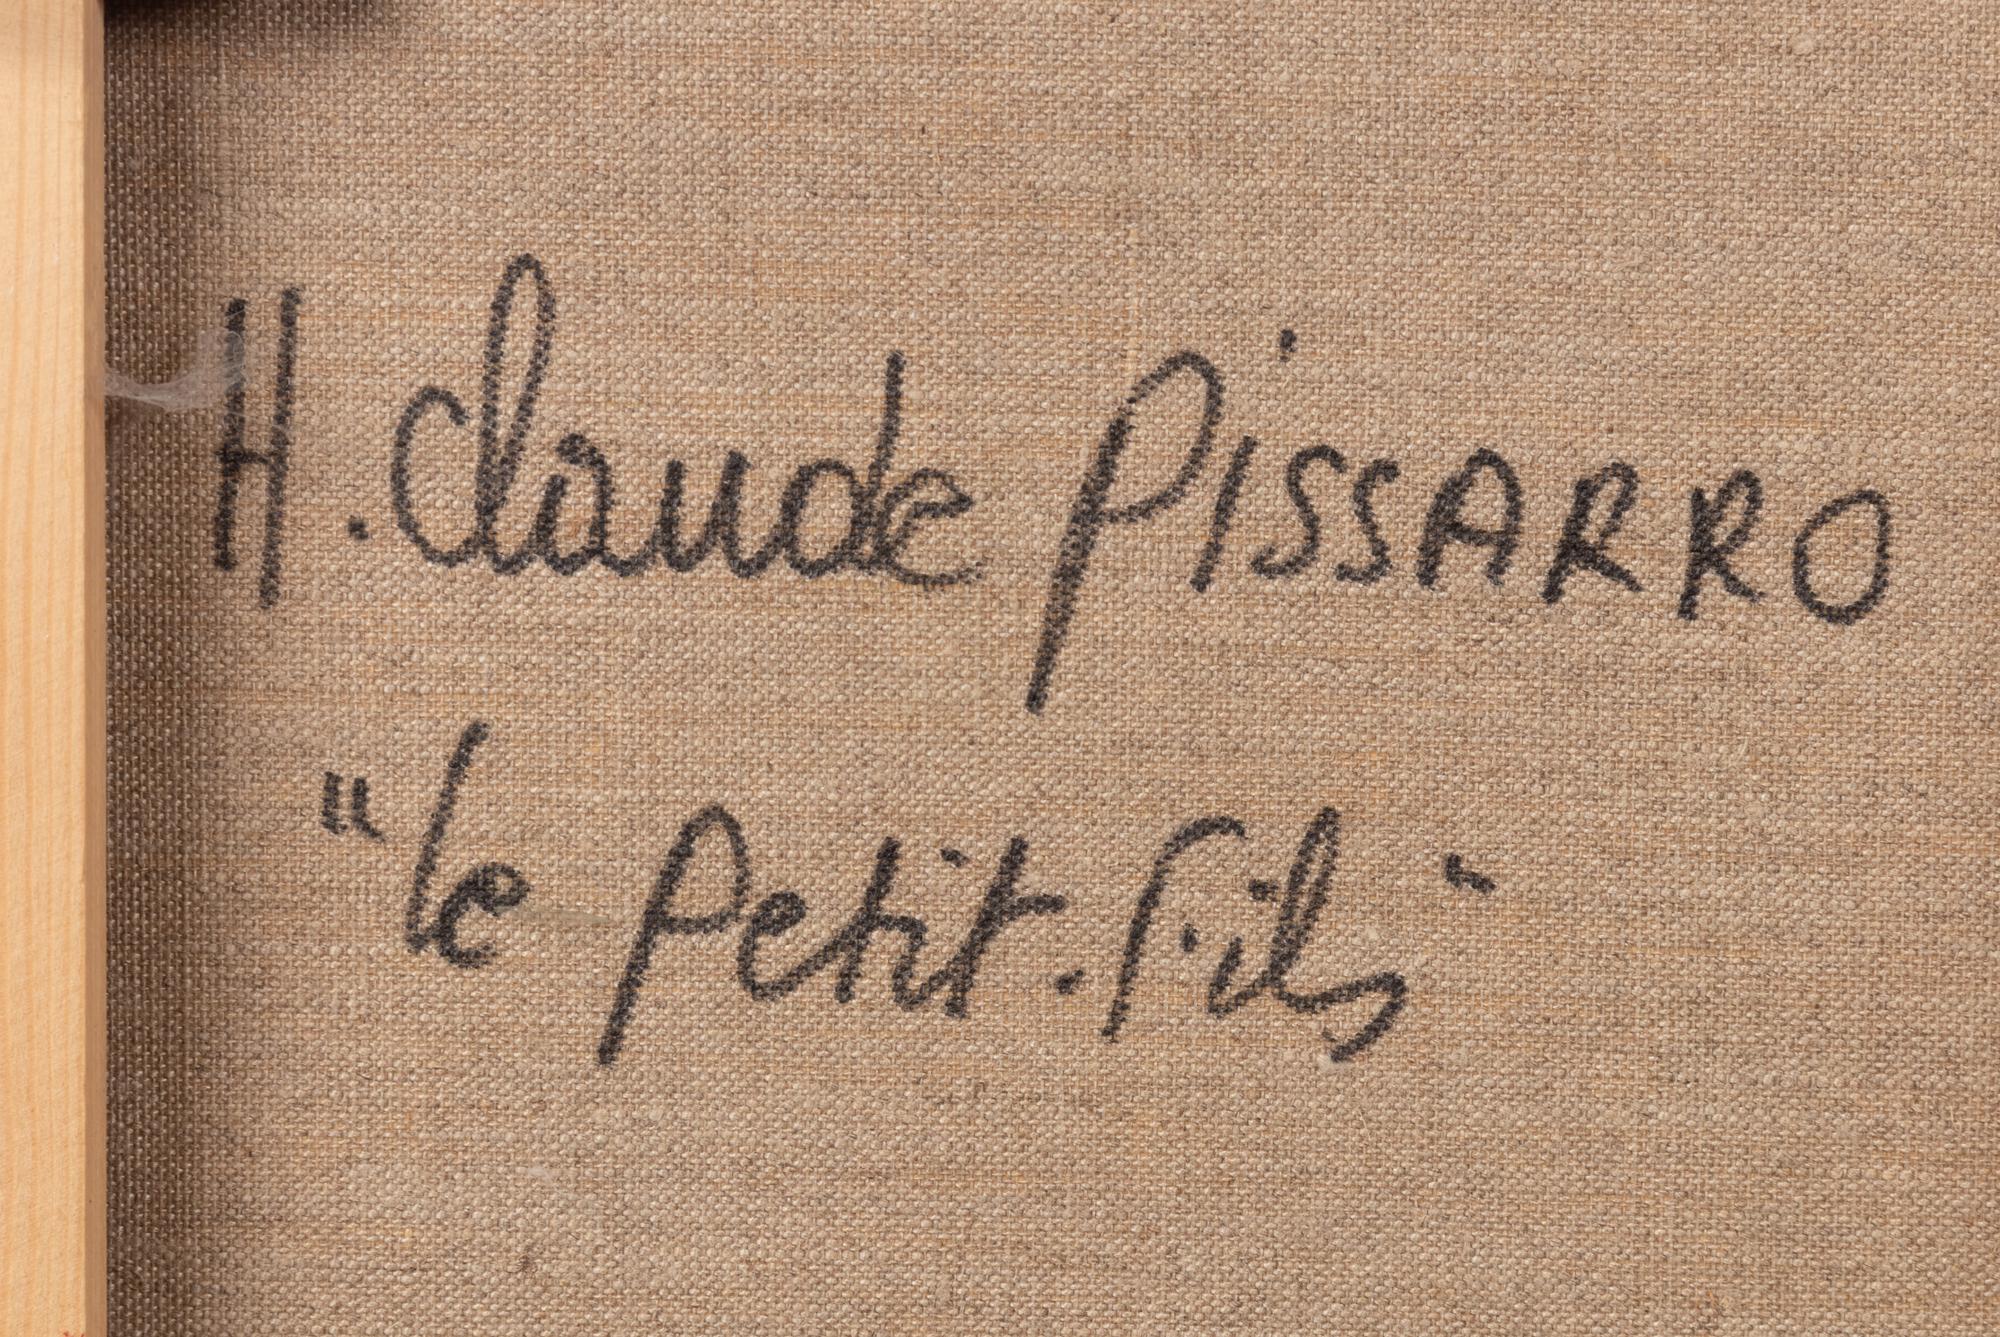 H. Claude PISSARRO
"le Petit-fils"